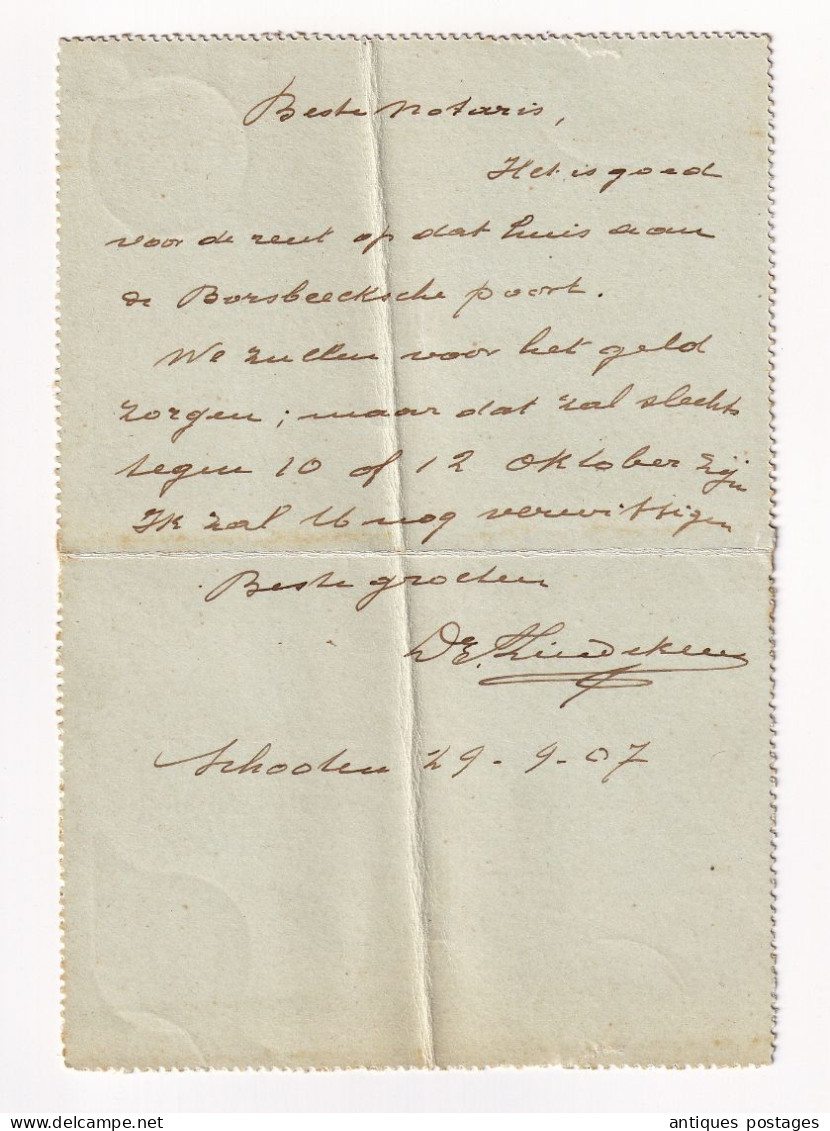 Beste Notaris,
Het is goed
voor de rent op dat huis aan
de Borsbeecksche poort.
We zullen voor het geld
zorgen; maar dat zal slechts
tegen 10 of 12 Oktober zijn
Ik zal U nog verwittigen
Beste groeten
Schooten 29-9-07
antiques postages